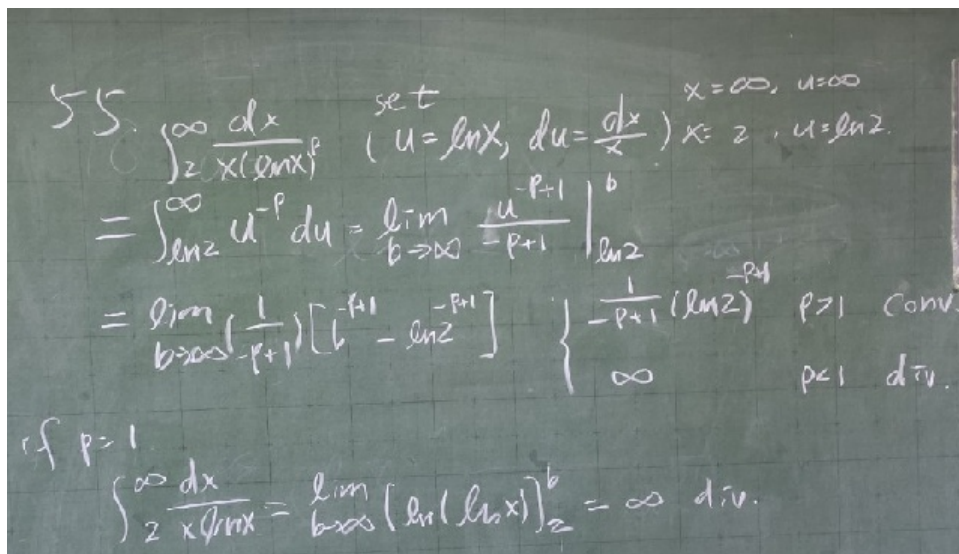 55. ∫_2^∞ dx / x(lnx)^p set (u = lnx, du = dx/x) x = ∞, u = ∞ x = 2, u = ln2.
= ∫_{ln2}^∞ u^{-p} du = lim_{b→∞} u^{-p+1} / -p+1 |_{ln2}^b
= lim_{b→∞} (1 / -p+1) [b^{-p+1} - ln2^{-p+1}] { 1 / -p+1 (ln2)^{-p+1} p>1 conv.
∞ p<1 div.
if p = 1
∫_2^∞ dx / x lnx = lim_{b→∞} [ln(lnx)]_2^b = ∞ div.